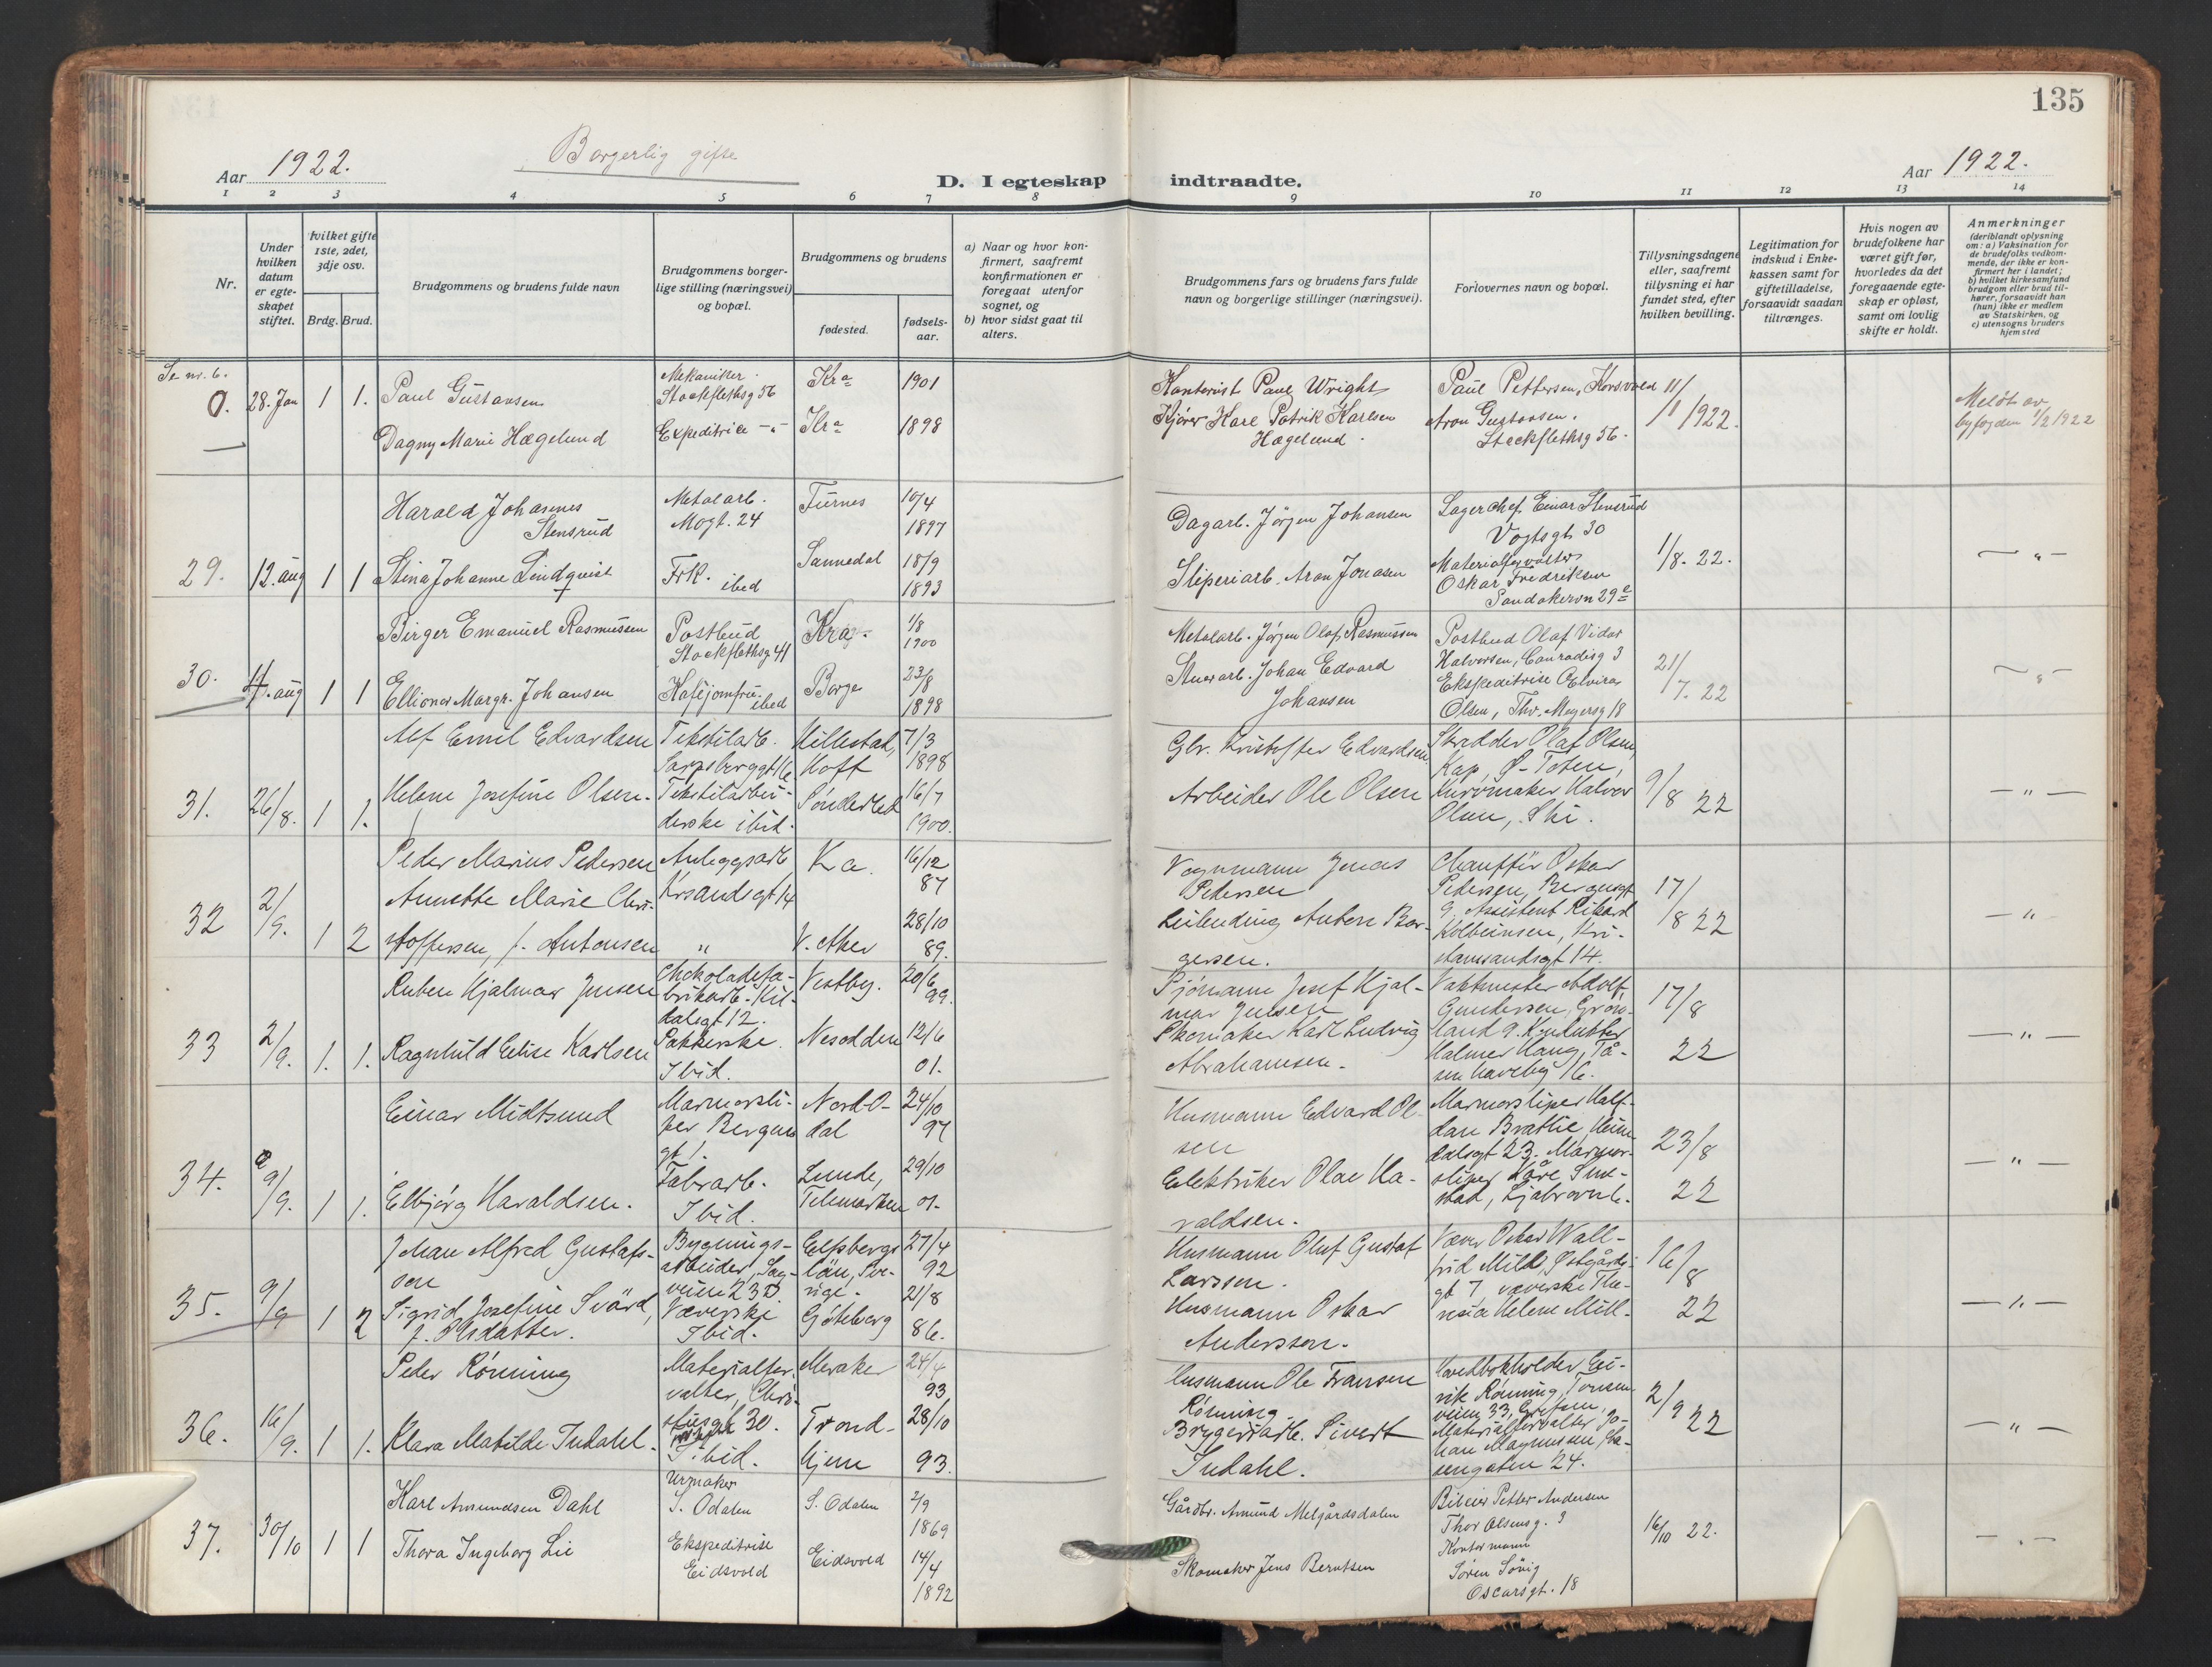 135
Aar 1922.
Borgerlig gifte
D. I egteskap indtraadte.
Aar 1922.
1 2 3 4 5 6 7 8 9 10 11 12 13 14
Nr.
Under hvilken datum er egteskapet stiftet.
hvilket gifte 1ste, 2det, 3dje osv.
Brdg. Brud.
Brudgommens og brudens fulde navn
Brudgommens borgerlige stilling (næringsvei) og bopæl.
Brudgommens og brudens
fødested.
fødselsaar.
a) Naar og hvor konfirmert, saafremt konfirmationen er foregaat utenfor sognet, og
b) hvor sidst gaat til alters.
Brudgommens fars og brudens fars fulde navn og borgerlige stillinger (næringsvei).
Forlovernes navn og bopæl.
Tillysningsdagene eller, saafremt tillysning ei har fundet sted, efter hvilken bevilling.
Legitimation for indskud i Enkekassen samt for giftetilladelse, forsaavidt saadan tiltrænges.
Hvis nogen av brudefolkene har været gift før, hvorledes da det foregaaende egteskap er opløst, samt om lovlig skifte er holdt.
Anmerkninger
(deriblandt oplysning om: a) Vaksination for de brudefolks vedkommende, der ikke er konfirmert her i landet; b) hvilket kirkesamfund brudgom eller brud tilhører, forsaavidt han (hun) ikke er medlem av Statskirken, og c) utensogns bruders hjemsted
Se nr. 6.
0. 28. Jan 1 1. Paul Gustavsen
Mekaniker. Stockflethsg 56
Kra 1901
Kontorist Paul Wright
Paul Pettersen, Korsvold
11/1 1922.
Meldt av byfogden 1/2 1922
Dagny Marie Hægelund
Expeditrice -"-
Kra 1898
Kjører Karl Patrik Karlsen Hægelund.
Aron Gustavsen. Stockflethsg 56.
Harald Johannes Stensrud
Metalarb. Mogt. 24
Furnes 10/4 1897
Dagarb. Jørgen Johansen
Lagerchef Einar Stensrud Vogtsgt 30
29. 12. aug 1 1 Stina Johanne Lindqvist
Frk. ibed
Sannedal 18/9 1893
Sliperiarb. Aron Jonasen
Materialforvalter Oskar Fredriksen Sandakervn 29
1/8. 22.
— " —
Birger Emanuel Rasmussen
Postbud Stockflethsg 41
Kra. 1/8 1900
Metalarb. Jørgen Olaf Rasmussen
Postbud Olaf Vidar Halvorsen, Conradisg 3
30. aug 1 1 Ellionor Margr. Johansen
Kafejomfru. ibed
Borge 23/8 1898
Stuerarb. Johan Edvard Johansen
Ekspeditrise Elvira Olsen, Thv. Meyersg 18
21/7. 22
— " —
Alf Emil Edvardsen
Tekstilarb. Sarpsborggt 16
Hillestad, Hoff 7/3 1898
Gbr. Kristoffer Edvardsen.
Skrædder Olaf Olsen, Kap, Ø-Toten,
31. 26/8. 1 1. Helene Josefine Olsen.
Tekstilarbeiderske ibid.
Sønderled 16/7 1900.
Arbeider Ole Olsen
Kurvmaker Halvor Olsen, Ski.
9/8 22
— " —
Peder Marius Pedersen
Anleggsarb Krsandsgt 14
Kra. 16/12 87
Vognmann Jonas Petersen
Chauffør Oskar Pedersen, Bergensgt 9.
32 2/9. 1 2 Annette Marie Christoffersen, f. Antonsen
"
V. Aker 28/10 89.
Leilending Anton Borgersen.
Assistent Rikard Kolbeinsen, Kristianssandsgt 14.
17/8 22
— "
Ruben Hjalmar Jensen
Chokoladefabrikarb. dalsgt 12.
Vestby. 20/6 99.
Sjömann Josef Hjalmar Jensen
Vaktmester Adolf Gundersen, Grønland 9.
33 2/9. 1. 1. Ragnhild Elise Karlsen
Pakkerske. Ibid.
Nesodden 12/6 01.
Skomaker Karl Ludvig Abrahamsen.
Konduktør Halmer Haug, Tåsen haveby 16.
17/8 22
— " —
Einar Midtsund
Marmorsliper Bergensgt 1.
Nord-Odal 24/10 97
Husmann Edvard Olsen
Marmorsliper Halfdan Bratlie, Heimdalsgt 23.
34. 9/9. 1 1. Elbjörg Haraldsen.
Fabrarb. Ibid.
Lunde, Telemarken 29/10 01.
Elektriker Olav Haraldsen.
Marmorsliper Kåre
23/8 22
— " —
Johan Alfred Gustafsson
Bygningsarbeider, Sagveien 23
Elfsborgs län, Sverige. 27/4 92
Husmann Oluf Gustaf Larsson.
Væver Oskar Wallfrid Mild, Østgårdsgt 7,
35. 9/9 1 2 Sigrid Josefine Svärd, f. Olsdatter.
Væverske Ibid.
Göteborg 21/8 86.
Husmann Oskar Andersson.
væverske Helene Mill.
16/8 22
— " —
Peder Rönning
Materialforvalter, Christiesgt 30.
Meraker 24/4 93
Husmann Ole Fransen Rönning.
Hovedbokholder Eivik Rönning, Tonsenveien 33, Grefsen,
36. 16/9. 1 1. Klara Matilde Indahl.
Ibid.
Trondhjem 28/10 93.
Bryggeriarb. Sivert Indahl.
Materialforvalter Johan Magnussen, gaten 24.
2/9 22
— " —
Karl Amundsen Dahl
Urmaker S. Odalen
S. Odalen 2/9 1869
Gårdbr. Amund Melgårdsdalen
Bileier Petter Andersen Thor Olsensg. 3
37. 30/10 1 1 Thora Ingeborg Lie
Ekspeditrise Eidsvold
Eidsvold 14/4 1892
Skomaker Jens Berntsen
Kontormann Søren Sövig Oscarsgt. 18
16/10 22.
— " —